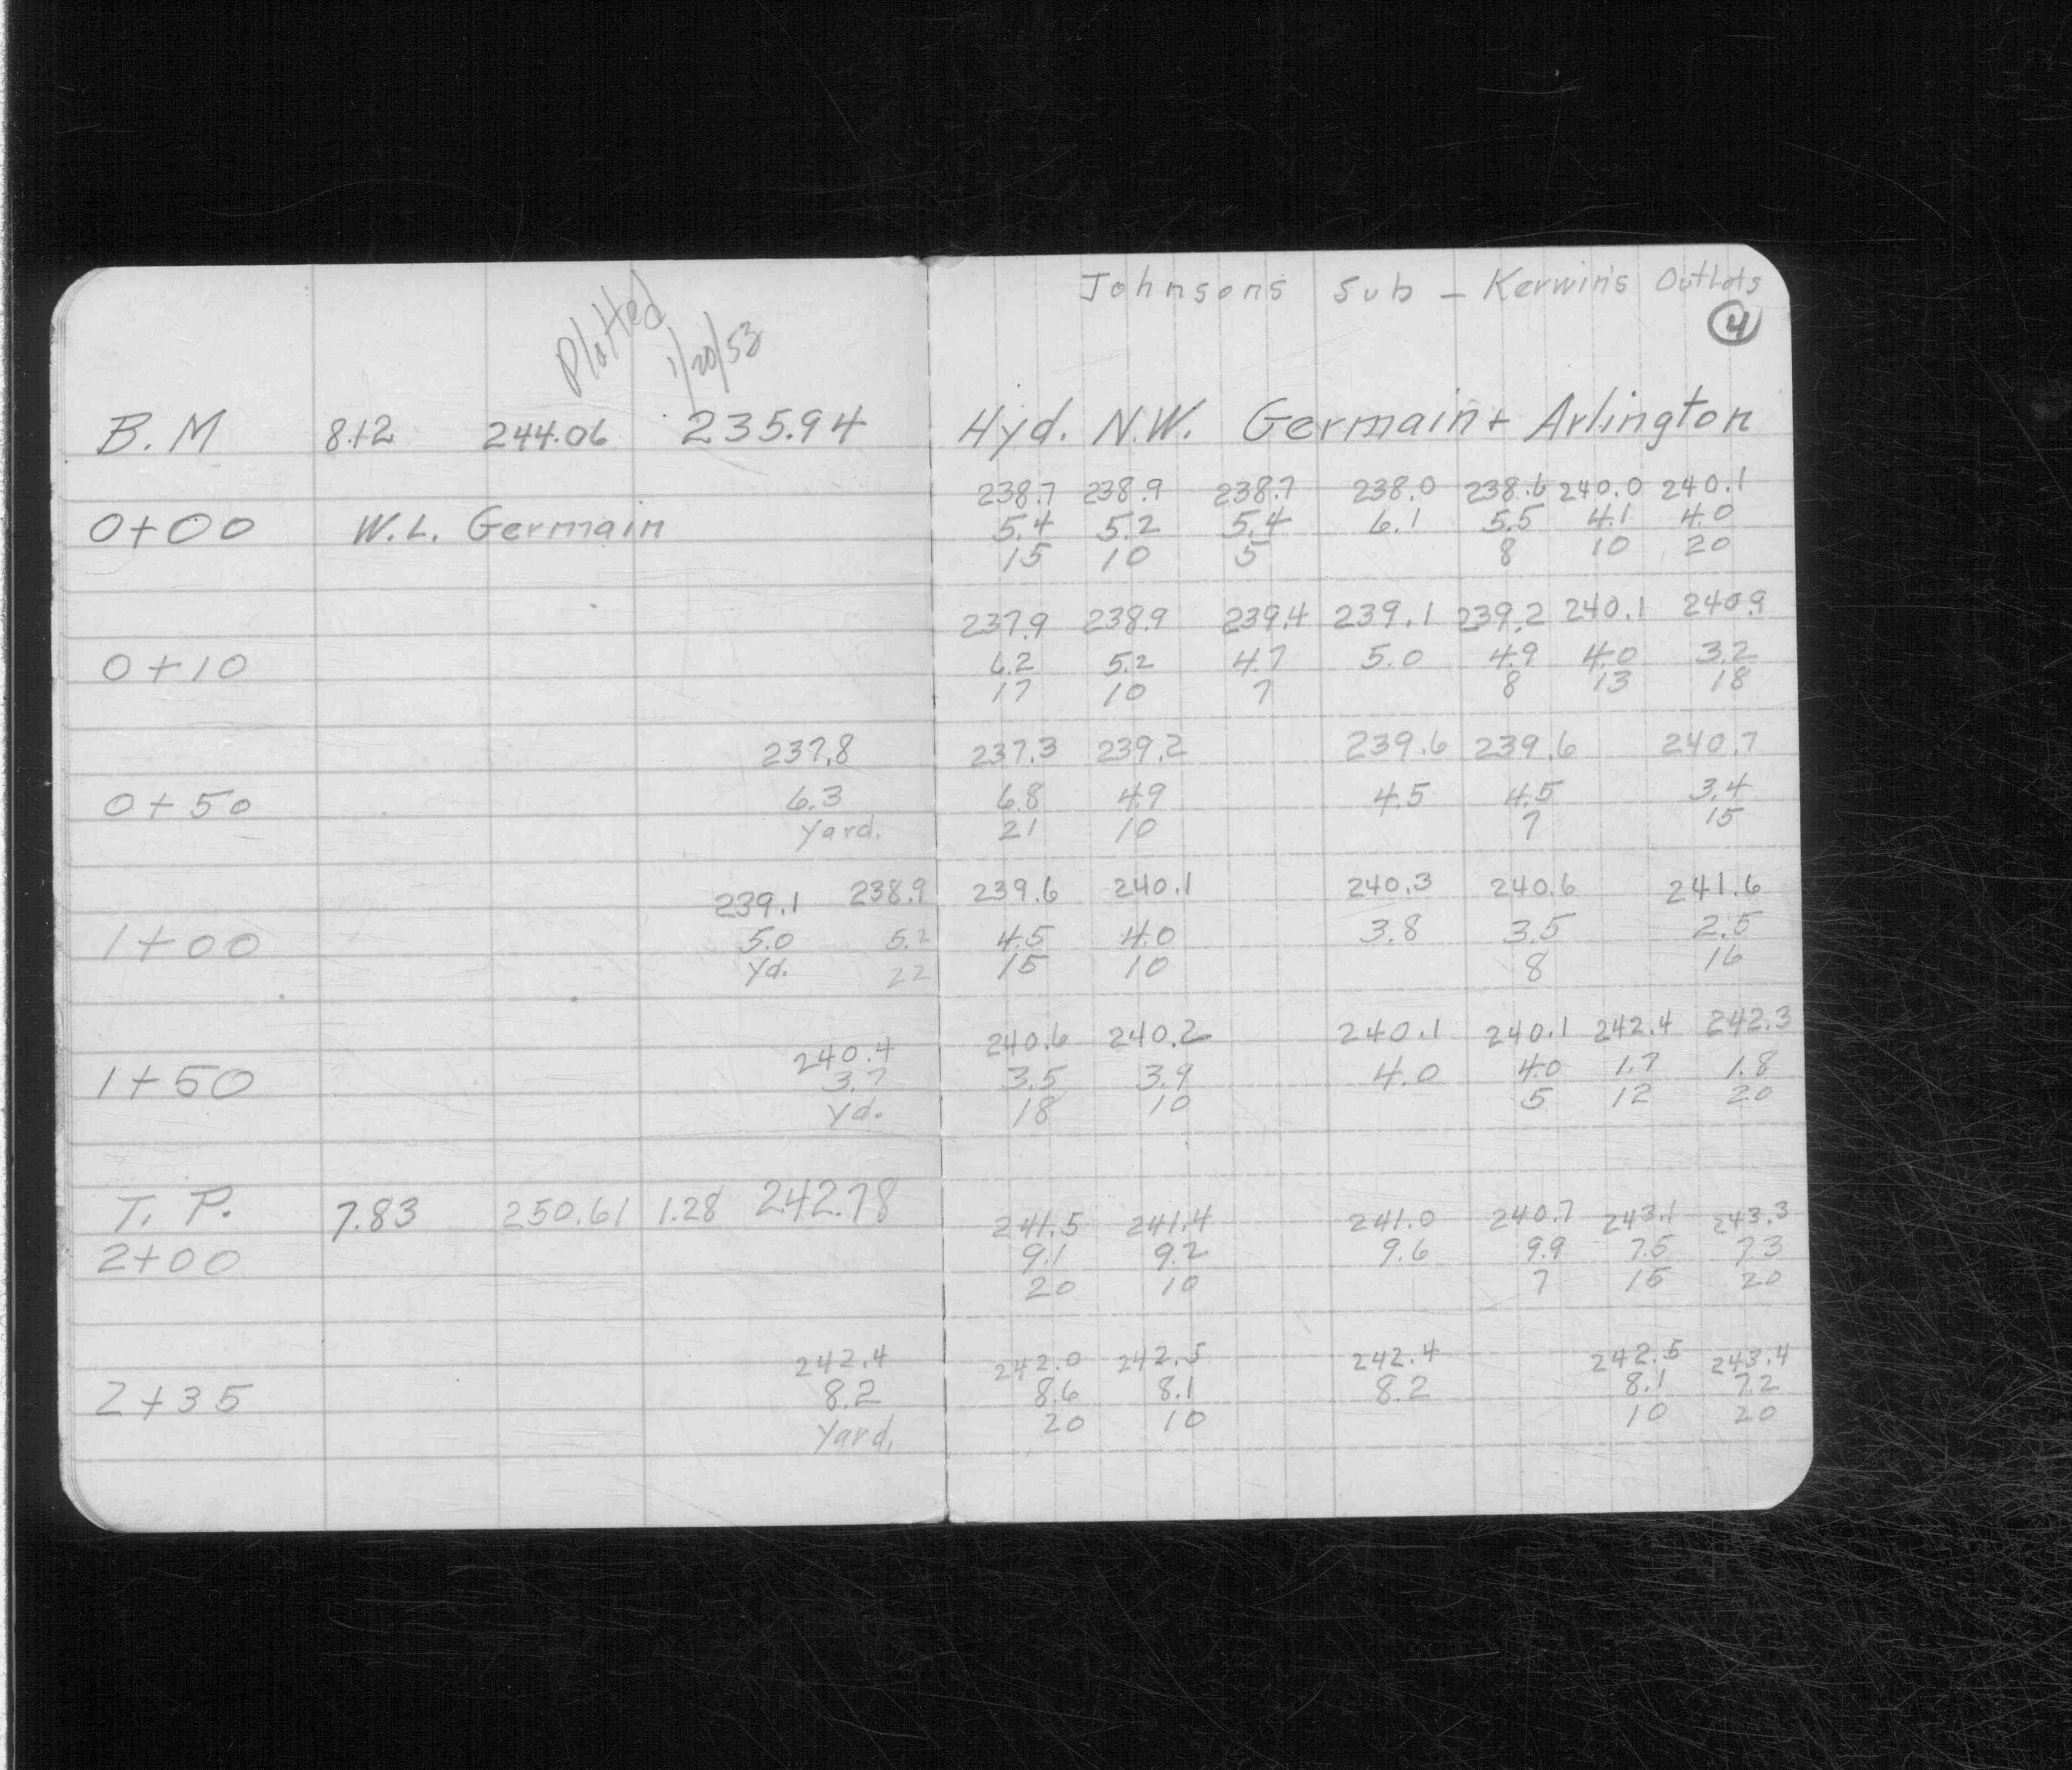 Johnsons Sub - Kerwin's Outlots
4
Plotted
1/20/53
B.M 8.12 244.06 235.94 Hyd. N.W. Germain + Arlington
238.7 238.9 238.7 238.0 238.6 240.0 240.1
0+00 W.L. Germain 5.4 5.2 5.4 6.1 5.5 4.1 4.0
15 10 5 8 10 20
237.9 238.9 239.4 239.1 239.2 240.1 240.9
0+10 6.2 5.2 4.7 5.0 4.9 4.0 3.2
17 10 7 8 13 18
237.8 237.3 239.2 239.6 239.6 240.7
0+50 6.3 6.8 4.9 4.5 4.5 3.4
Yard. 21 10 7 15
239.1 238.9 239.6 240.1 240.3 240.6 241.6
1+00 5.0 5.2 4.5 4.0 3.8 3.5 2.5
Yd. 22 15 10 8 16
240.4 240.6 240.2 240.1 240.1 242.4 242.3
1+50 3.7 3.5 3.9 4.0 4.0 1.7 1.8
Yd. 18 10 5 12 20
T. P. 7.83 250.61 1.28 242.78 241.5 241.4 241.0 240.7 243.1 243.3
2+00 9.1 9.2 9.6 9.9 7.5 7.3
20 10 7 15 20
242.4 242.0 242.5 242.4 242.5 243.4
2+35 8.2 8.6 8.1 8.2 8.1 7.2
Yard. 20 10 10 20